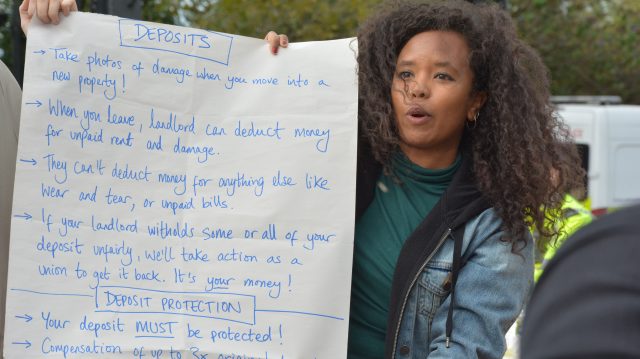 DEPOSITS
→ Take photos of damage when you move into a
new property!
→ When you leave, landlord can deduct money
for unpaid rent and damage.
→ They can't deduct money for anything else like
wear and tear, or unpaid bills.
→ If your landlord witholds some or all of your
deposit unfairly, we'll take action as a
union to get it back. It's your money!
DEPOSIT PROTECTION
→ Your deposit MUST be protected!
→ Compensation of up to 3x original